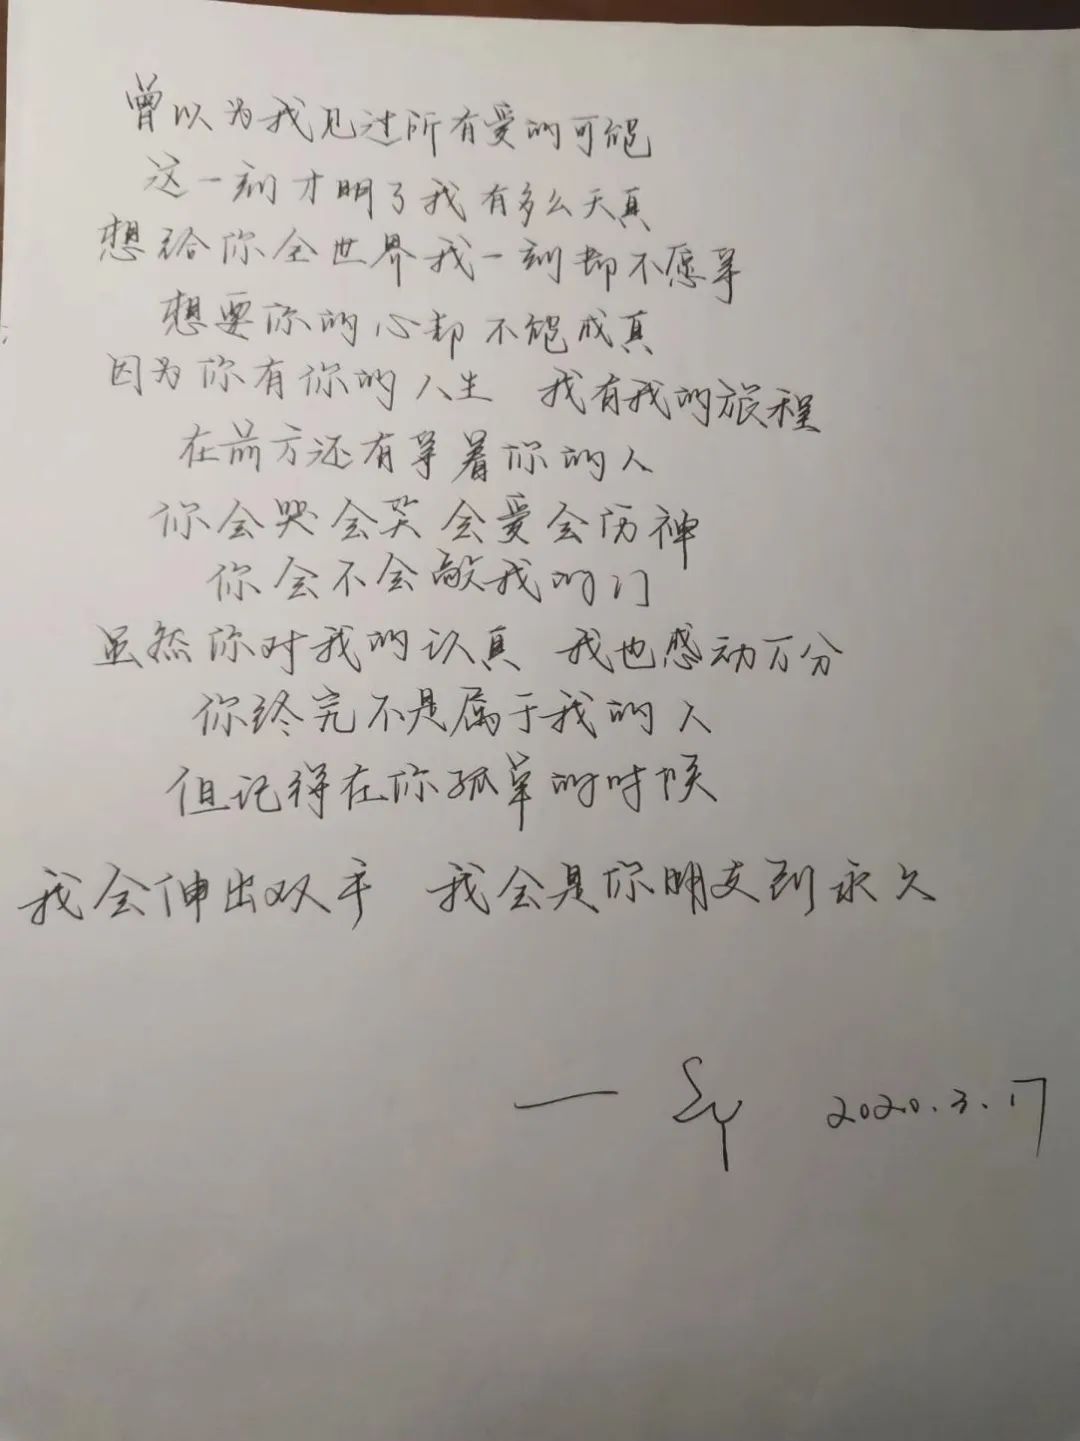 曾以为我见过所有爱的可能
这一刻才明了我有多么天真
想给你全世界我一刻都不愿等
想要你的心却不能成真
因为你有你的人生 我有我的旅程
在前方还有等着你的人
你会哭会笑会爱会伤神
你会不会敲我的门
虽然你对我的认真 我也感动万分
你终究不是属于我的人
但记得在你孤单的时候
我会伸出双手 我会是你朋友到永久
—— SY 2020.3.17